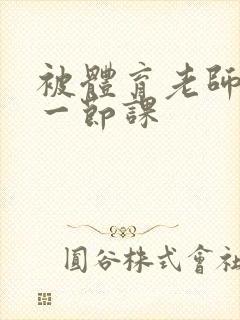 被體育老師
一節課
圓谷株式會社